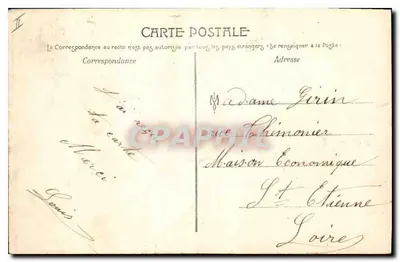 II
CARTE POSTALE
La Correspondance au recto n'est pas autorisée par tous les pays étrangers (Se renseigner à la Poste)
Correspondance
Adresse
J'ai reçu
ta carte
Merci
Louis
Madame Girin
rue Thimonier
Maison Economique
St Etienne
Loire
CARTE POSTALE